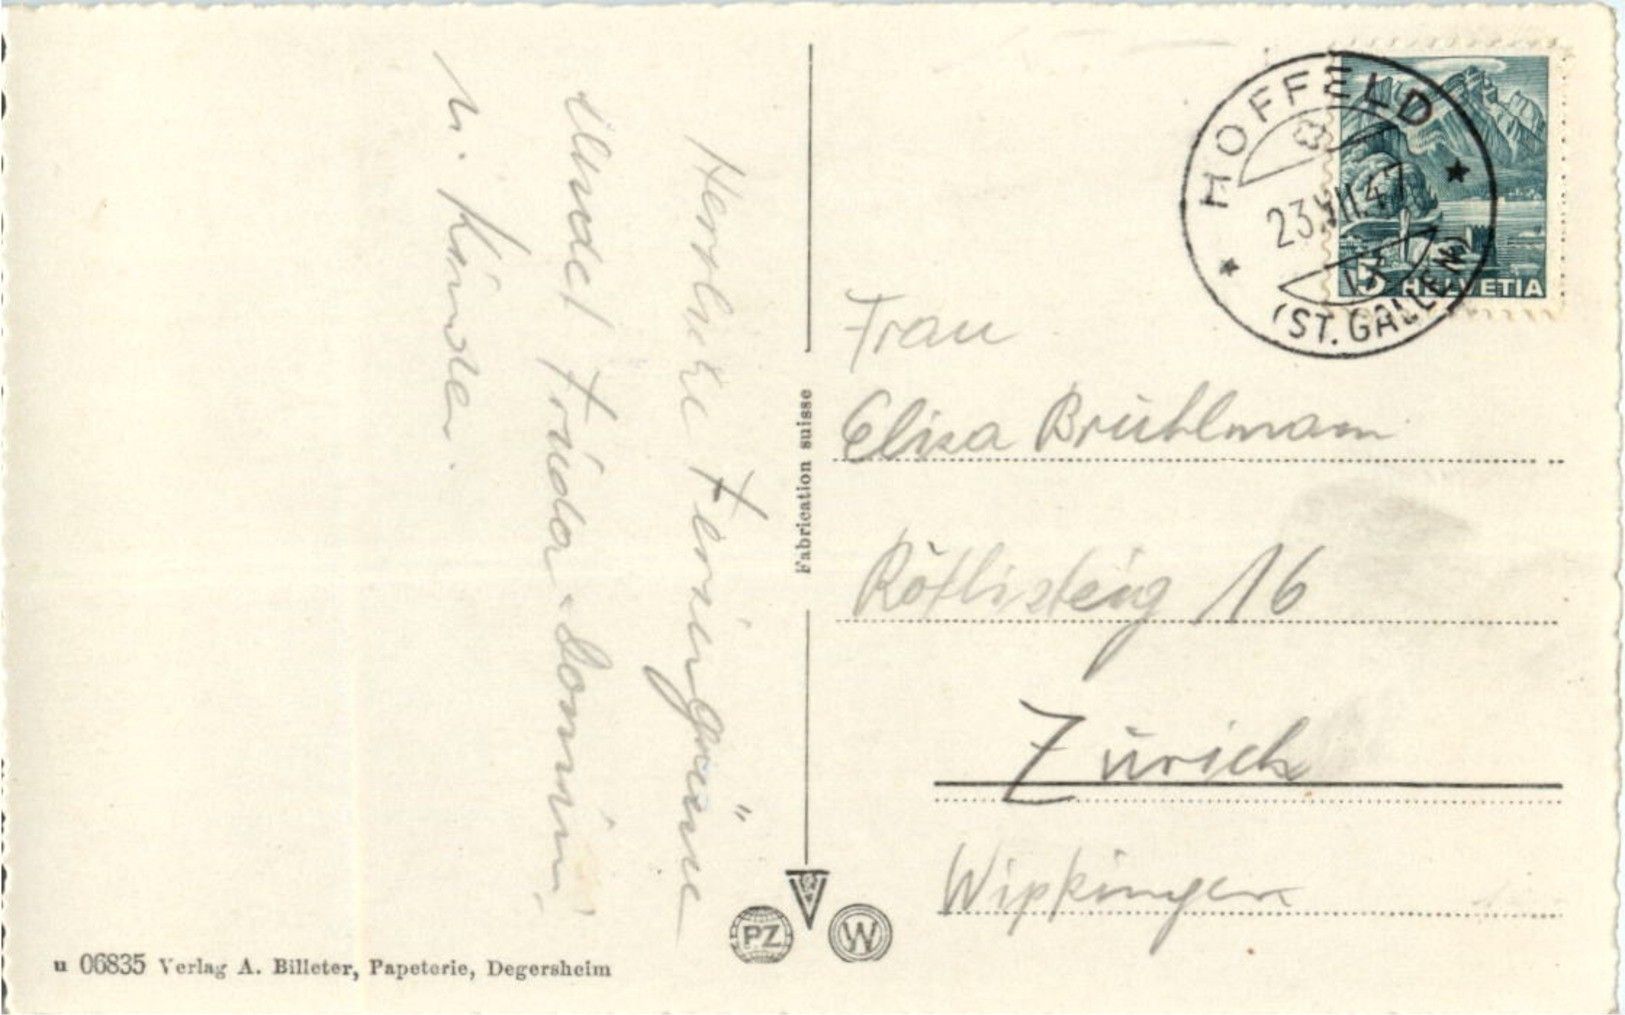 Herrliche Feriengrüsse
sendet Frieda
u. Kinder.
Fabrication suisse
HOFFELD
23.VII.47
(ST. GALLEN)
5 HELVETIA
Frau
Elisa Brühlmann
Rötlisteig 16
Zürich
Wipkingen
PZ
W
u 06835 Verlag A. Billeter, Papeterie, Degersheim